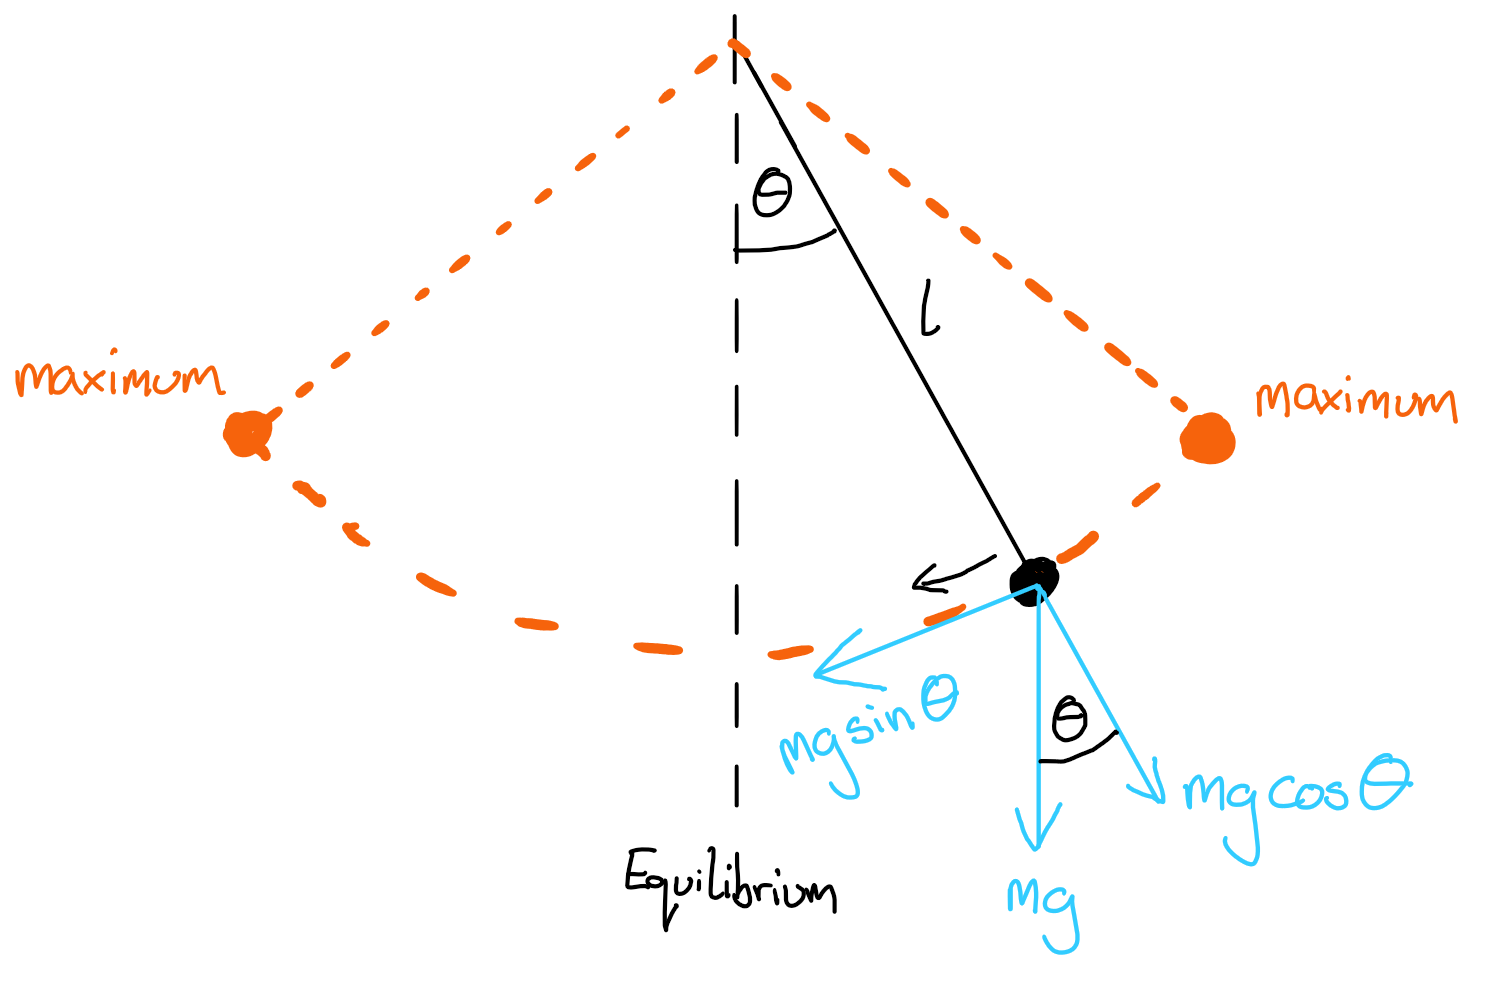 θ
l
maximum
maximum
mg sin θ
θ
mg cos θ
Equilibrium
mg